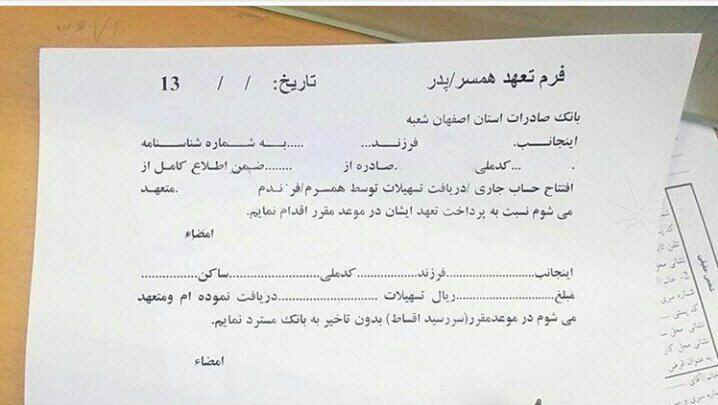 فرم تعهد همسر/پدر تاریخ: / / 13
بانک صادرات استان اصفهان شعبه
اینجانب. فرزند... .....به شماره شناسنامه
. ...کدملی .صادره از ........ضمن اطلاع کامل از
افتتاح حساب جاری /دریافت تسهیلات توسط همسرم/فرزندم .متعهد
می شوم نسبت به پرداخت تعهد ایشان در موعد مقرر اقدام نمایم.
امضاء
اینجانب........................فرزند................کدملی........................ساکن...............
مبلغ..........................ریال تسهیلات ..........................دریافت نموده ام ومتعهد
می شوم در موعدمقرر(سررسید اقساط) بدون تاخیر به بانک مسترد نمایم.
امضاء
شماره سری
کد پستی
نشانی محل
نشانی محل کار
به عنوان قرض